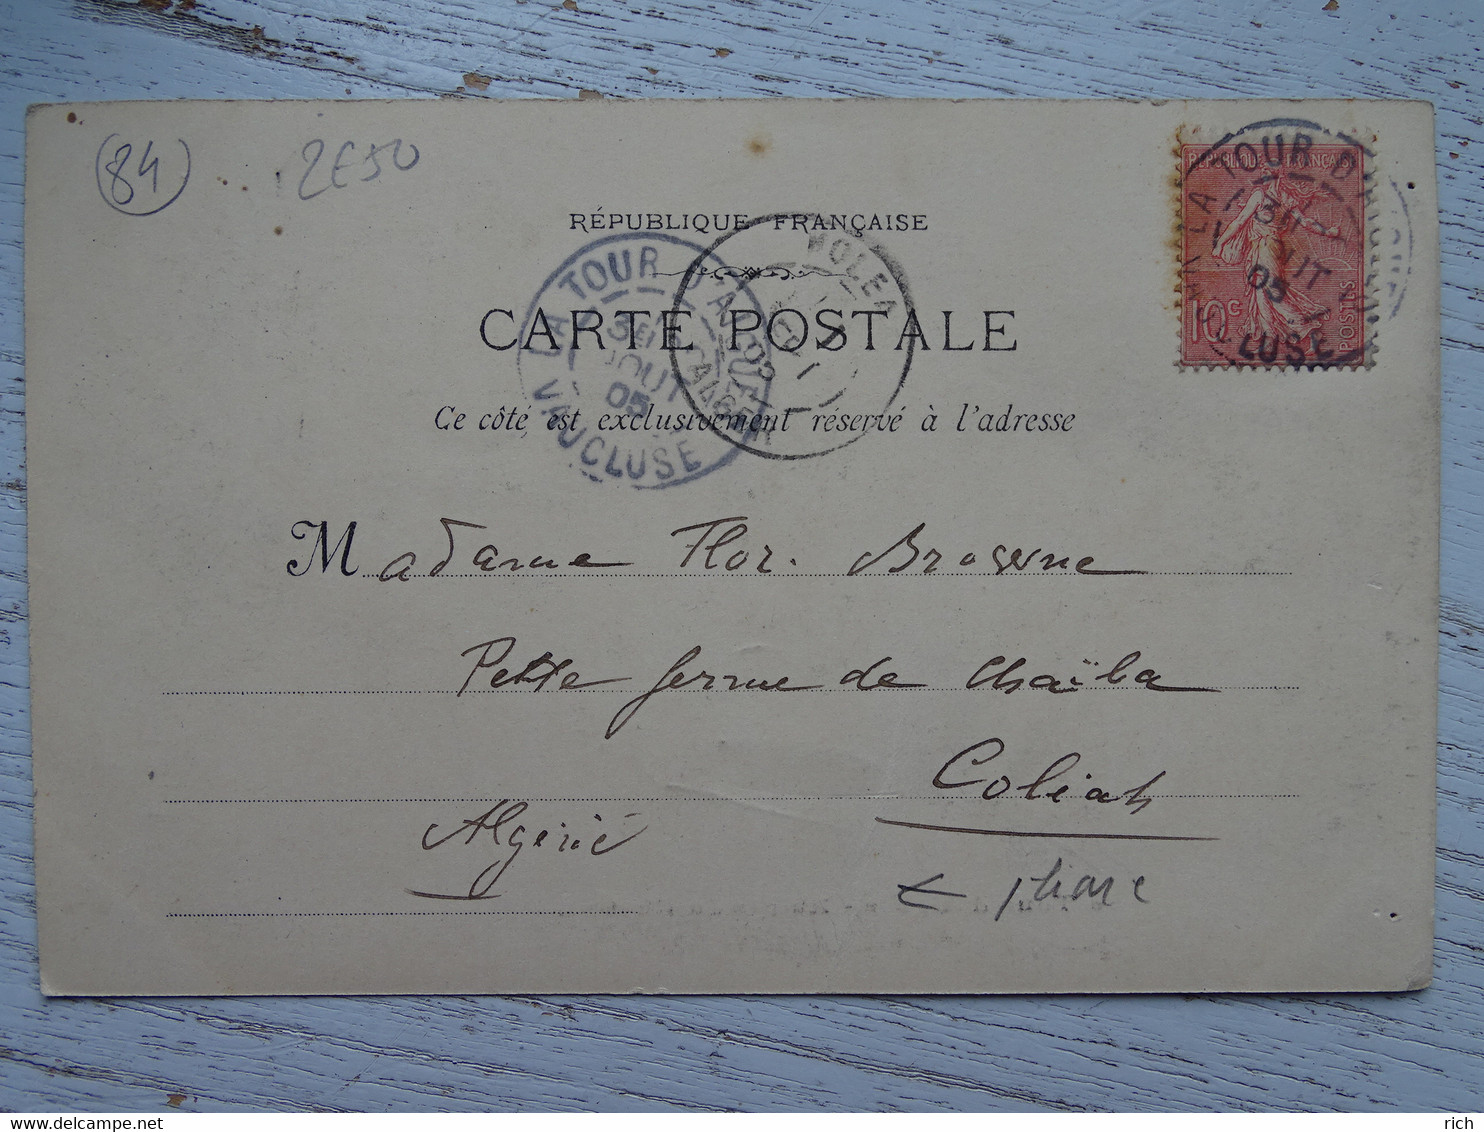 84
2E50
RÉPUBLIQUE FRANÇAISE
CARTE POSTALE
Ce côté est exclusivement réservé à l'adresse
LA TOUR D'AIGUES
AOUT
05
VAUCLUSE
KOLEA
ALGER
REPUBLIQUE FRANÇAISE
10c
POSTES
LA TOUR D'AIGUES
05
VAUCLUSE
Madame Flor.
Petite ferme de Chaïba
Coléah
Algérie
phare
delcampe.net
rich